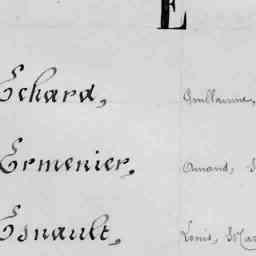 E
Echard, Guillaume,
Ermenier, Amand,
Esnault, Louis, Mar